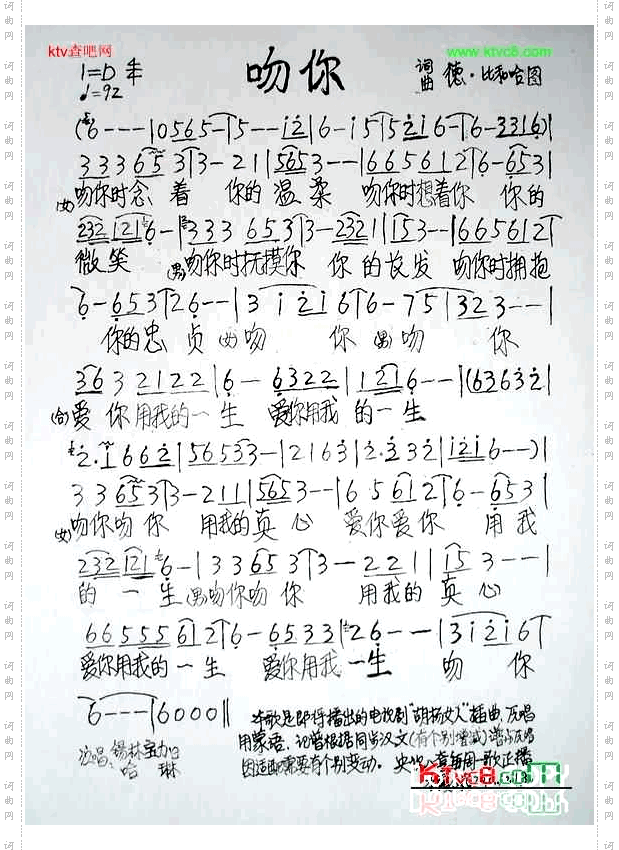 ktv查吧网
www.ktvc8.com
吻你
1=D
♩=92
词曲 德·比和哈图
(6---|0565-|5---i2|6-i5|52i6-|6-3316)|
333653|3-21|5653---|665612|6-653|
(女)吻你时念着 你的温柔 吻你时想着你 你的
2321216-|333653|3-2321|153--|665612|
微笑 (男)吻你时抚摸你 你的长发 吻你时拥抱
6-653|26--|3i2i6|6-75|323--|
你的忠贞 (女)吻你 (男)吻你
3632122|6-6322|1216--|(63632|
(合)爱你用我的一生 爱你用我的一生
2·i662|56533-|2163|2·332|i2i6--)|
33653|3-211|5653--|65612|6-653|
(女)吻你吻你 用我的真心 爱你爱你 用我
2321216-|33653|3-2211|153--|
的一生 (男)吻你吻你 用我的真心
66555612|6-6533|26---|3i2i6|
爱你用我的一生 爱你用我一生 吻你
6---|6000‖
本歌是即将播出的电视剧"胡杨女人"插曲,原唱
用蒙语,记谱根据同步汉文(有个别增减)谱与原唱
演唱:锡林宝力日
哈琳
因适应需要有个别变动。
每周一歌正播
Ktvc8.com
词曲网